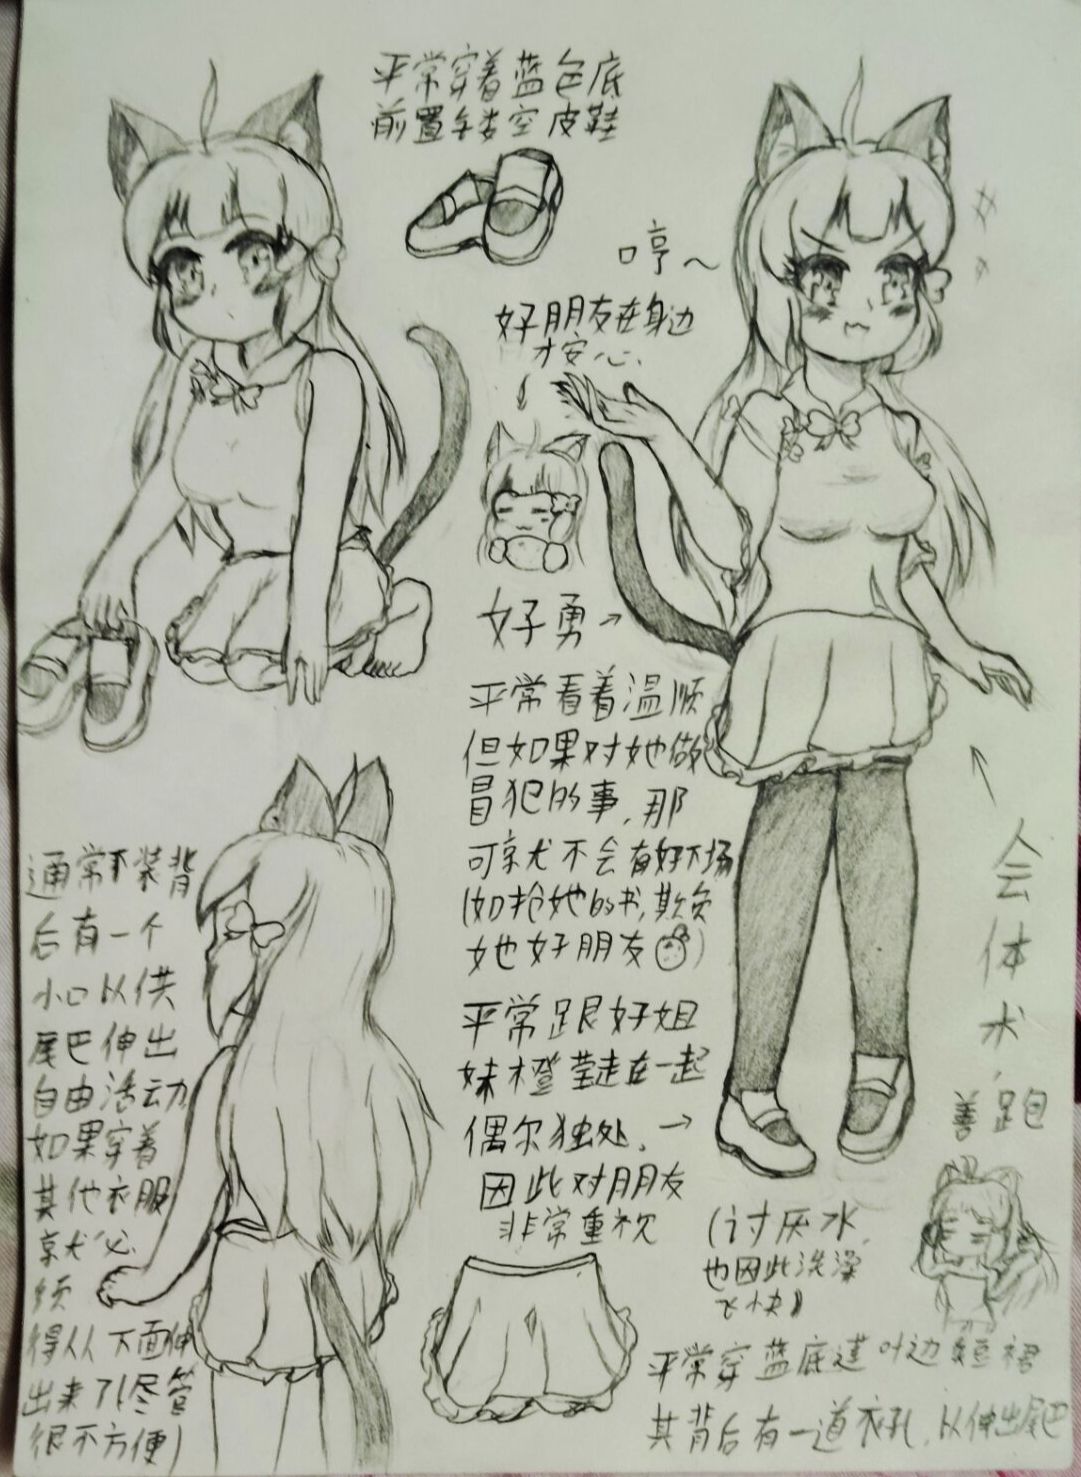 平常穿着蓝色底
前置镂空皮鞋
哼～
好朋友在身边
才安心、
好勇→
平常看着温顺
但如果对她做
冒犯的事,那
可京犬不会有好下场
(如抢她的书,欺负
她好朋友)
平常跟好姐
妹橙莹走在一起
偶尔独处、→
因此对朋友
非常重视
会体术,
善跑
(讨厌水,
也因此洗澡
飞快)
通常下装背
后有一个
小口以供
尾巴伸出
自由活动
如果穿着
其他衣服
京犬必
须
得从下面伸
出来(尽管
很不方便)
平常穿蓝底莲叶边短裙
其背后有一道衣孔,以伸出尾巴